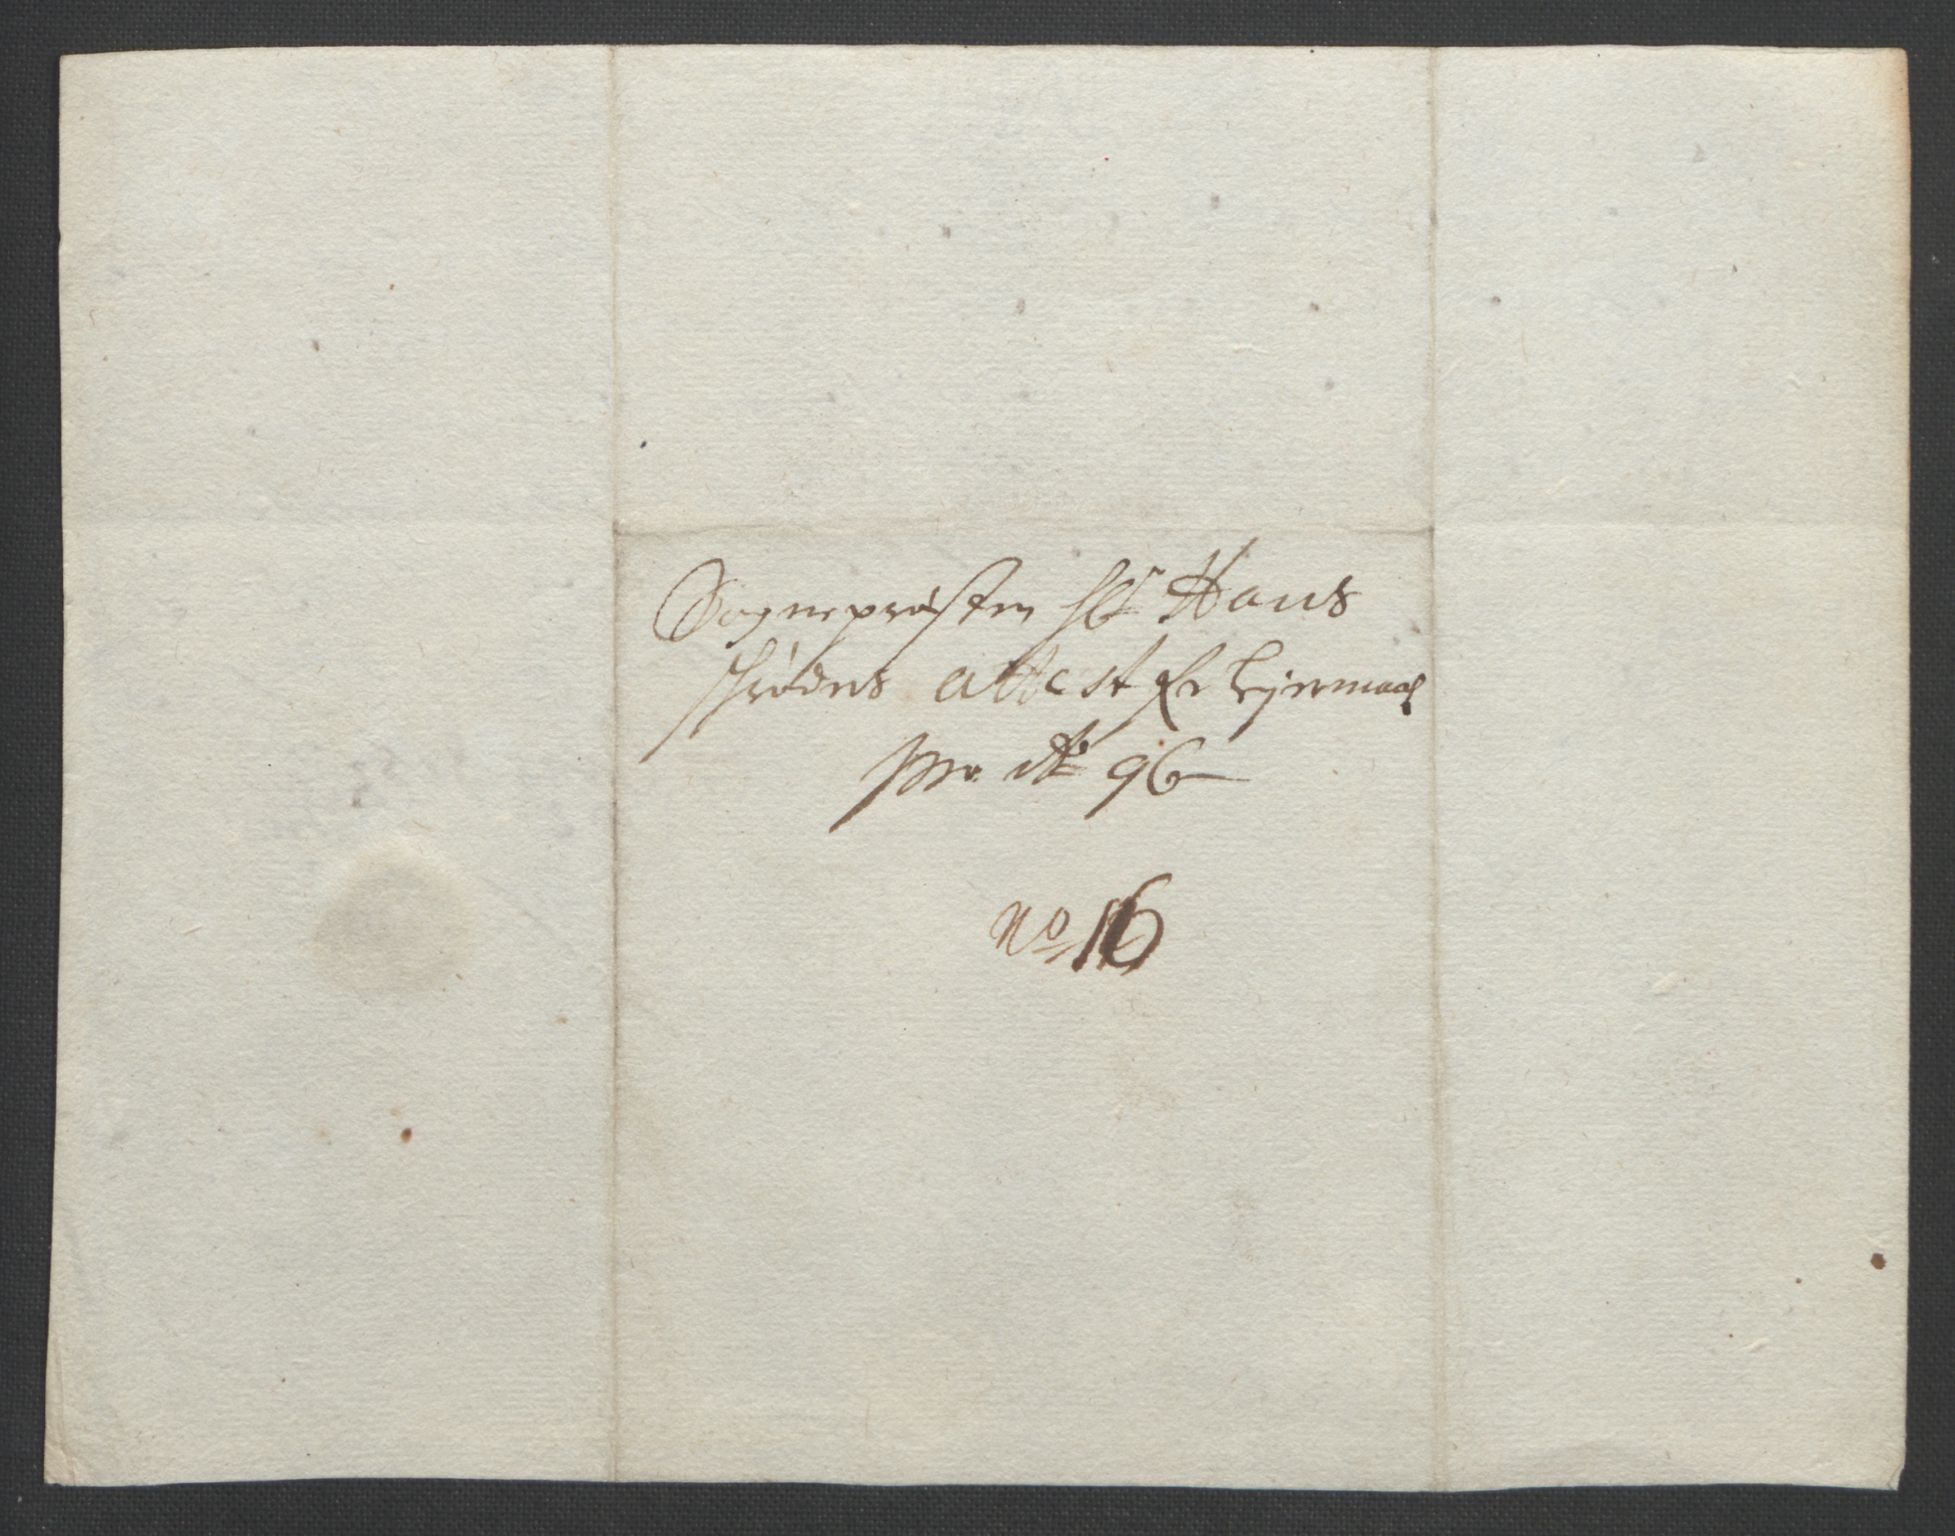 Sognepresten Hr Hans
schrøders attest for Lejermaal
pro Ao 96
No 16